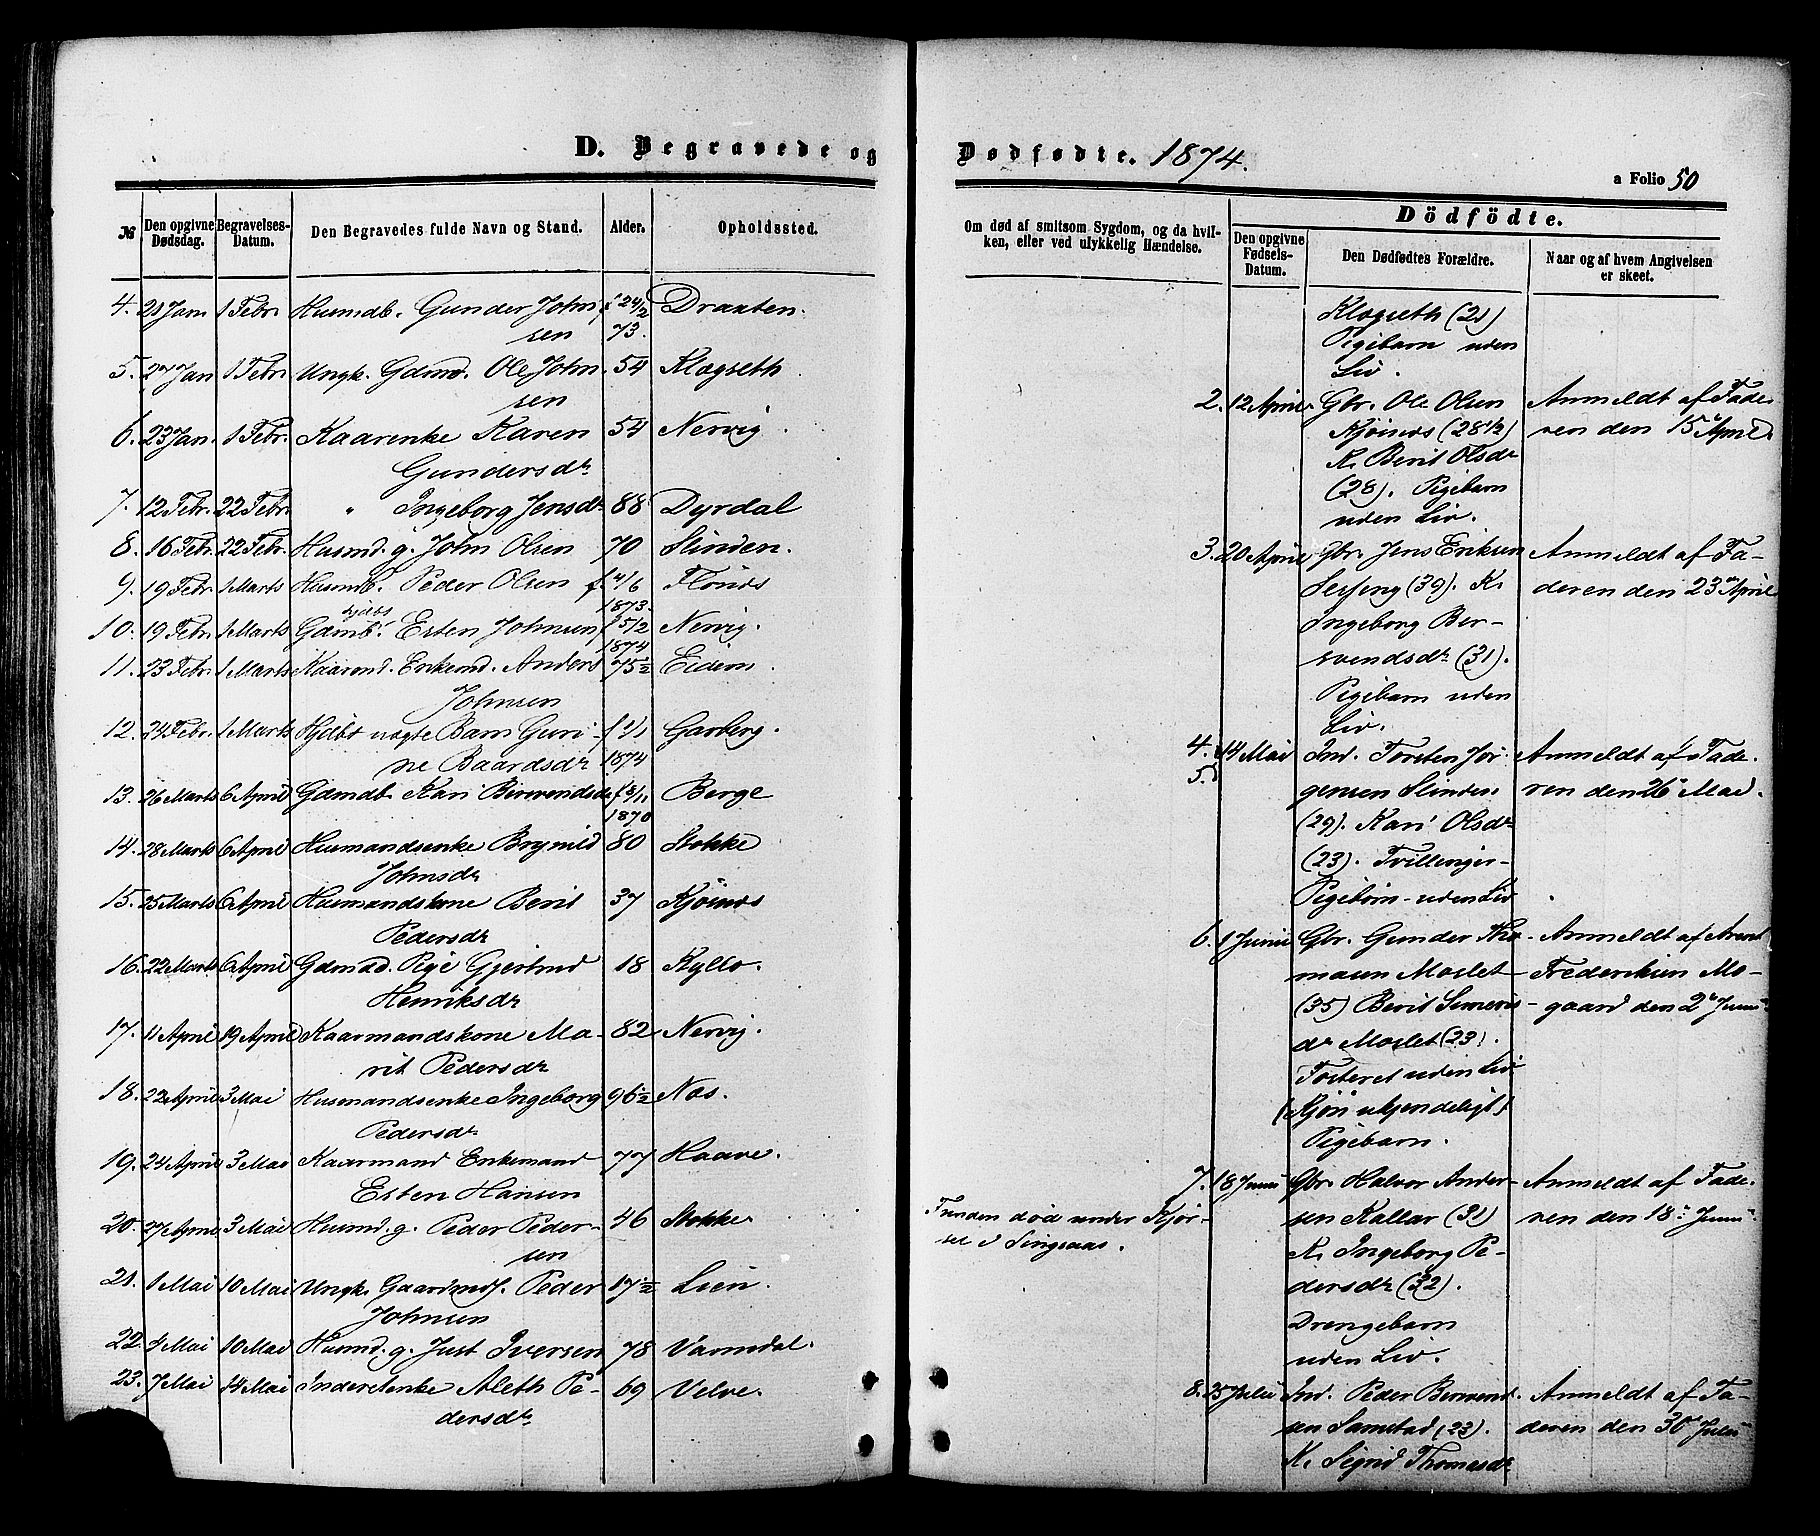 D. Begravede og
№ Den opgivne Dødsdag. Begravelses-Datum. Den Begravedes fulde Navn og Stand. Alder. Opholdssted.
4. 21 Jan. 1 Febr. Husmdb. Gunder John f. 24/2 Draaten.
sen 73.
5. 27 Jan 1 Febr. Ungk. Gdmd. Ole John 54 Klægseth
sen
6. 23 Jan. 1 Febr. Kaarenke Karen 54 Nervig.
Gundersdr
7. 12 Febr. 22 Febr. " Ingeborg Jensdr 88 Dyrdal
8. 16 Febr. 22 Febr. Husmd. g. John Olsen 70 Slinden.
9. 19 Febr. 1 Marts Husmb. Peder Olsen f. 4/6 Flönes
1873.
10. 19 Febr. 1 Marts Gdmb. Esten Johnsen f 5/2 Nervig.
1874
11. 23 Febr. 1 Marts Kaarmd. Enkemd. Anders 75½ Eidem.
Johnsen
12. 24 Febr. 1 Marts Hjdbt uægte Barn Guri- f 1/1 Garberg.
ne Baardsdr 1874
13. 26 Marts 6 April Gdmdb. Kari Bersvendsdr f 3/11 Berge
1870
14. 28 Marts 6 April Husmandsenke Brynild 80 Stokke
Johnsdr
15. 25 Marts 6 April Husmandskone Berit 37 Kjösnæs
Pedersdr
16. 22 Marts 6 April Gdmd. Pige Gjertrud 18 Kyllo.
Henriksdr
17. 11 April 19 April Kaarmandskone Ma- 82 Nervig.
rit Pedersdr
18. 22 April 3 Mai Husmandsenke Ingeborg 96½ Næs.
Pedersdr
19. 24 April 3 Mai Kaarmand Enkemand 77 Haave.
Esten Hansen
20. 27 April 3 Mai Husmd. g. Peder Peder- 46 Stokke.
sen
21. 1 Mai 10 Mai Ungk. Gaardmds. Peder 17½ Lien.
Johnsen
22. 4 Mai 10 Mai Husmd. g. Just Iversen 78 Vamsdal.
23. 7 Mai 14 Mai Inderstenke Aleth Pe- 69 Velve.
dersdr.
Dødfødte. 1874.
a Folio 50
Om død af smitsom Sygdom, og da hvil-
ken, eller ved ulykkelig Hændelse.
Dödfödte.
Den opgivne Fødsels-Datum. Den Dødfødtes Forældre. Naar og af hvem Angivelsen er skeet.
Klægseth (21)
Pigebarn uden
Liv.
2. 12 April Gbr. Ole Olsen Anmeldt af Fade-
Kjösnæs (28½) ren den 15 April.
K. Berit Olsdr
(28). Pigebarn
uden Liv.
3. 20 April Gbr. Jens Eriksen Anmeldt af Fa-
(39). K. deren den 23 April
Ingeborg Ber-
svendsdr (31).
Pigebarn uden
Liv.
4. 14 Mai Ind. Torsten Jör- Anmeldt af Fade-
5. gensen Slinden ren den 26 Mai.
(29). Kari Olsdr
(23). Tvillinger
Pigebörn - uden Liv
6. 1 Juni Gbr. Gunder Tho- Anmeldt af Arent
masen Moslet Frederiksen Mo-
(35) Berit Simens- gaard den 2 Juni
dr Moslet (23).
Fosteret uden Liv
(Kjön ukjendeligt)
Pigebarn.
7. 18 Juni Gbr. Halvor Ander- Anmeldt af Fade-
sen Kallar (31) ren den 18 Juni
K. Ingeborg Pe-
dersdr (32).
Drengebarn
uden Liv.
Funden död under Kjör-
sel i Singsaas.
8. 25 Juli Ind. Peder Bersvend- Anmeldt af Fa-
sen Samstad (23). deren den 30 Juli
K. Sigrid Thomasdr